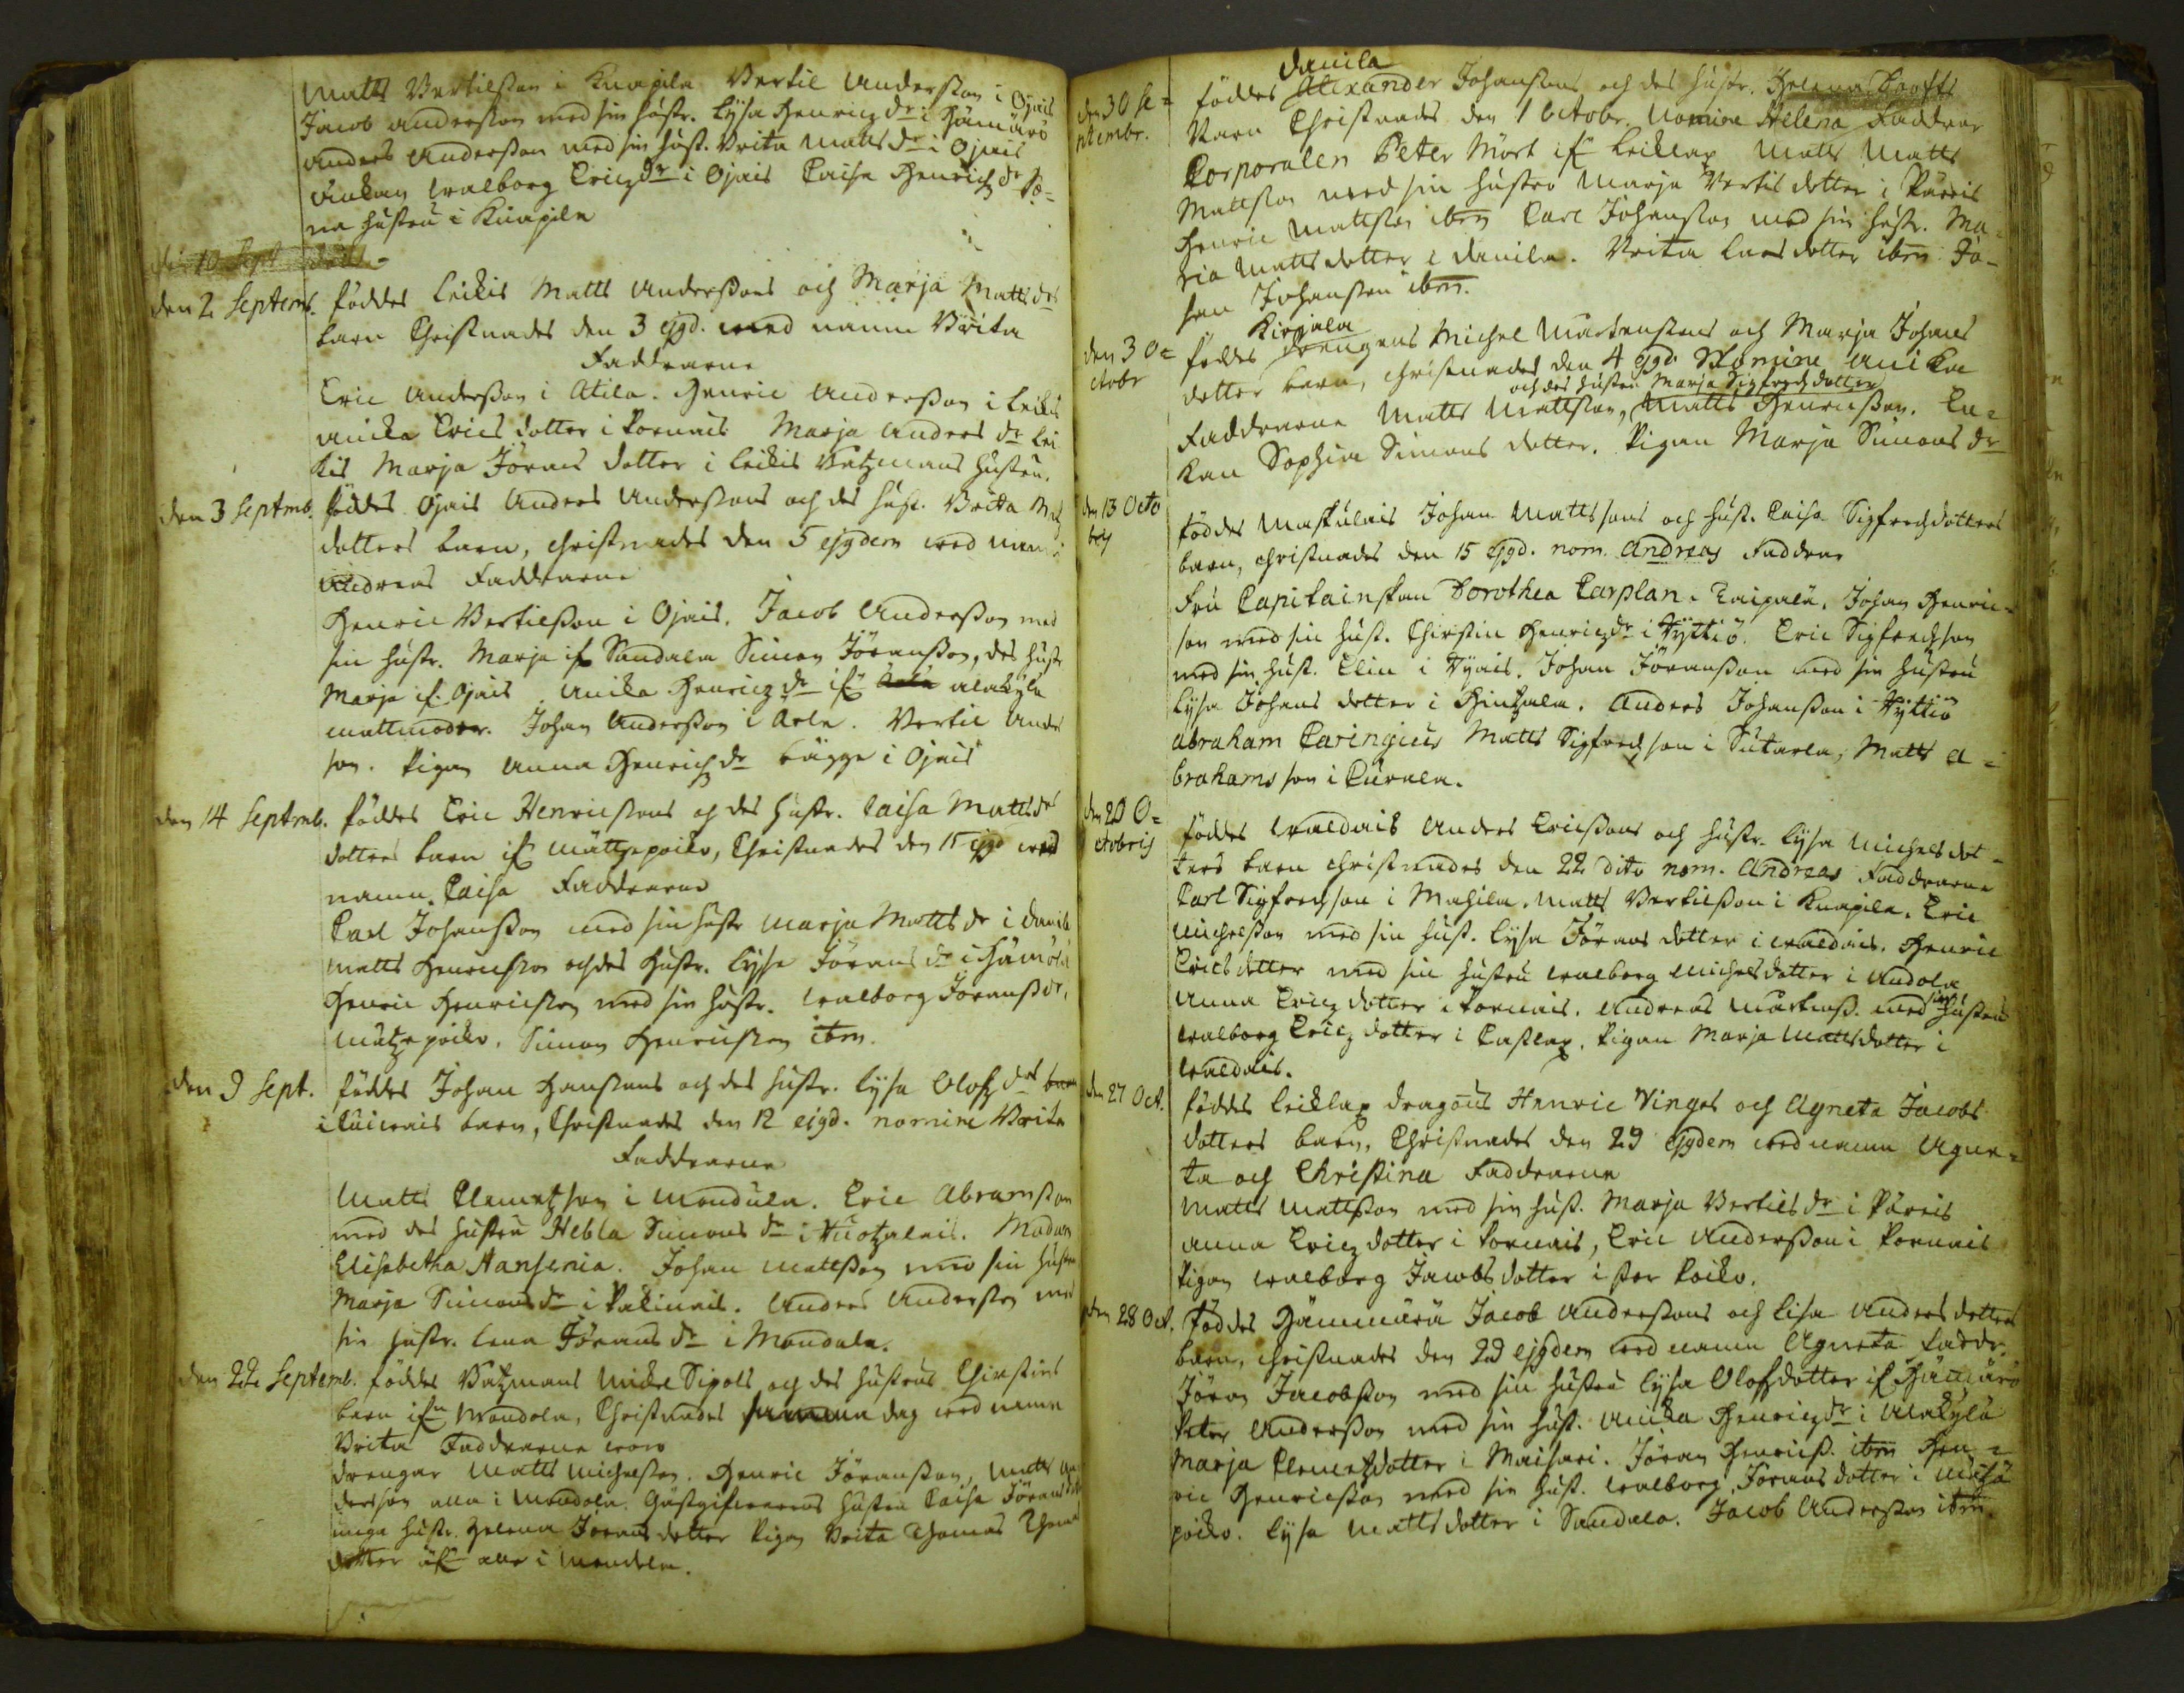 Matts Bertilsson i Knapila Bertil Andersson i Ojais
Jacob andersson med sin hustr. Lysa Henricz dr i Hämärö
anders Andersson med sin hust. Brita Matts dr i Ojais
Enkan walborg Ericz dr i Ojais Caisa Henrichz dr So=
na hustru i Knapila
den 10 Sept
den 2 Septemb. föddes Leikis Matts Anderssons och Marja Matts drs
barn Christnades den 3 ejgd. med namn Brita
Faddrarne
Eric Andersson i Atila. Henric Andersson i Leikis
Anika Erics dotter i Pornais Marja Anders dr Lei
kis Marja Jörans dotter i Leikis Vatzmans Hustru.
den 3 Septmb. föddes Ojais Anders Anderssons och des hust. Britta Matts
dotters barn, christnades den 5 ejgdem med namn
Andreas Faddrarne
Henric Bertilsson i Ojais. Jacob Andersson med
sin hustr. Marja if Sandala Simon Jöransson, des hustr
Marja if. Ojais Anika Henricz dr if alakylä
mattmoder. Johan Andersson i Arla. Bertil Anders
son. Pigan Anna Henrichz dr bägge i Ojais
den 14 Septmb. föddes Eric Henricssons och des hustr. Caisa Matts drs
dotters barn if Mättzepoiko, Christnades den 15 ejgd med
namn. Caisa Faddrarne
Carl Johansson med sin hustr Marja Matts dr i Danila
Matts Henricsson och des hustr. Lysa Jörans dr i Hämörö
Henric Henricsson med sin hustr. walborg Jöranss dr,
Mätzepoiko. Simon Henricsson ibm.
den 9 Sept. föddes Johan Hanssons och des hustr. Lysa Olofz drs barn
i Cuiwais barn, Christnades den 12 ejgd. nomine Brita
Faddrarne
Matts Clemetsson i Mondula. Eric Abramsson
med des hustru Hebla Simons dr i Kuotzalais. Madam
Elisabetha Hansenia. Johan Mattsson med sin hustru
Marja Simons dr i Päkinais. Anders Andersson med
sin hustr. Lena Jörans dr i Mondala.
den 22 Septemb. föddes Vatzmans Mickel Sipols och des hustrus Chirstins
barn ifn Mondola, Christnades samma dag med namn
Brita Faddrarne woro
drengar Matts Michelsson. Henric Jöransson, Matts An
dersson alla i Mondola. Gästgifwarens hustru Caisa Jörans dotter
unga hustr. Helena Jörans dotter Pigan Brita Thomas
dotter alla i Mondola.
den 30 Se=
ptembr.
Danila
föddes Alexander Johanssons och des hustr. Helena
Barn Christnades den 1 Octobr. Nomine Helena Faddrar
Corporalen Peter Mört if Leiklax Matts Matts
Mattsson med sin hustru Marja Bertils dotter i Päreis
Henric Mattsson ibm Carl Johansson med sin hustr. Ma=
ria Matts dotter i Danila. Brita Lars dotter ibm Jo-
han Johansson ibm.
den 3 O=
ctobr
Kirjala
föddes drengens Michel Mårtenssons och Marja Johans
dotter barn, christnades den 4 ejgd. Nomine Anika
och des hustru Marja Sigfredz dotter
Faddrarne Matts Mattsson, Matts Henricsson. En=
kan Sophia Simons dotter. Pigan Marja Simons dr
den 13 Octo
bris
föddes Maskulais Johan Mattssons och hust. Caisa Sigfredzdotters
barn, christnades den 15 ejgd. nom. Andreas Faddrar
Fru Capitainskan Dorothea Carplan. Caipala. Johan Henric=
son med sin hust. Chirstin Henricz dr i Tyttiö. Eric Sigfredsson
med sin hust. Elin i Tyais. Johan Jöransson med sin hustru
Lysa Johans dotter i Hintzala. Anders Johansson i Tyttiö
Abraham Caringius Matts Sigfredsson i Sutarla, Matts A=
brahamsson i Curala.
den 20 O=
ctobris
föddes waldais Anders Ericssons och hustr. Lysa Michels dot=
ters barn christnades den 22 dito nom. Andreas Faddrarne
Carl Sigfredsson i Mahila. Matts Bertilsson i Knapila. Eric
Michelsson med sin hust. Lysa Jörans dotter i waldais. Henric
Erics dotter med sin hustru walborg Michels dotter i Andola
Anna Ericz dotter i Pornais. Andreas Mårtenss. med sin hustru
walborg Ericz dotter i Taslax. Pigan Marja Mattsdotter i
waldais.
den 27 Oct.
föddes Leiklax dragons Henric Vinges och Agneta Jacobs
dotters barn, Christnades den 29 ejgdem med namn Agne=
ta och Christina Faddrarne
Matts Mattsson med sin hust. Marja Bertils dr i Päreis
Anna Ericz dotter i Pornais, Eric Andersson i Pornais
Pigan walborg Jacobs dotter i stor Poiko.
den 28 Oct. föddes Hämmärä Jacob Anderssons och Lisa Anders dotters
barn, christnades den 29 ejgdem med namn Agneta Faddr.
Jöran Jacobsson med sin hustru Lysa Olofsdotter if Hämärö
Peter Andersson med sin hust. Anika Henricz dr i Alakylä
Marja Clemetzdotter i Maisari. Jöran Henrics. ibm Hen=
ric Henricsson med sin hust. walborg Jörans dotter i Mätzä
poiko. Lysa Matts dotter i Sandala. Jacob Andersson ibm.